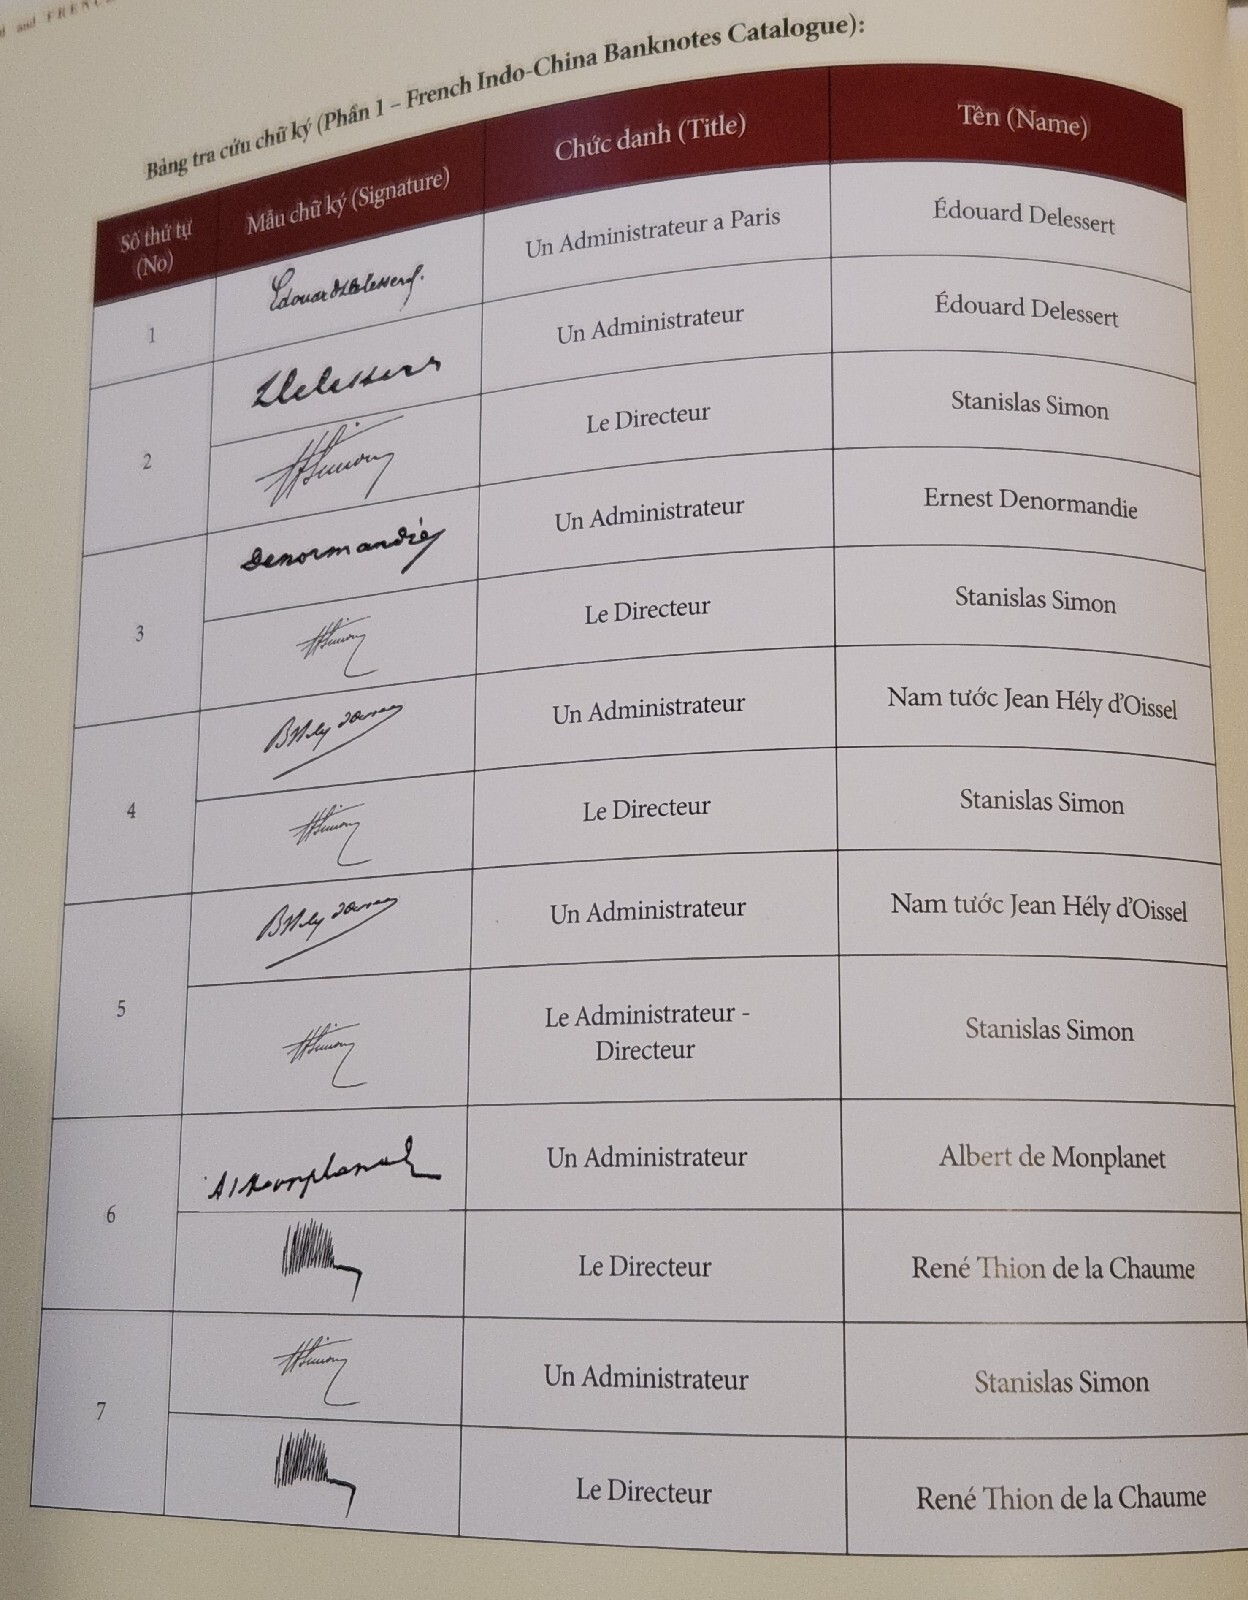 Bảng tra cứu chữ ký (Phần 1 – French Indo-China Banknotes Catalogue):
Số thứ tự (No) Mẫu chữ ký (Signature) Chức danh (Title) Tên (Name)
1 Édouard Delessert. Un Administrateur a Paris Édouard Delessert
2 Delessert Un Administrateur Édouard Delessert
Simon Le Directeur Stanislas Simon
3 Denormandie Un Administrateur Ernest Denormandie
Simon Le Directeur Stanislas Simon
4 Un Administrateur Nam tước Jean Hély d'Oissel
Simon Le Directeur Stanislas Simon
5 Un Administrateur Nam tước Jean Hély d'Oissel
Simon Le Administrateur - Directeur Stanislas Simon
6 Un Administrateur Albert de Monplanet
Le Directeur René Thion de la Chaume
7 Simon Un Administrateur Stanislas Simon
Le Directeur René Thion de la Chaume